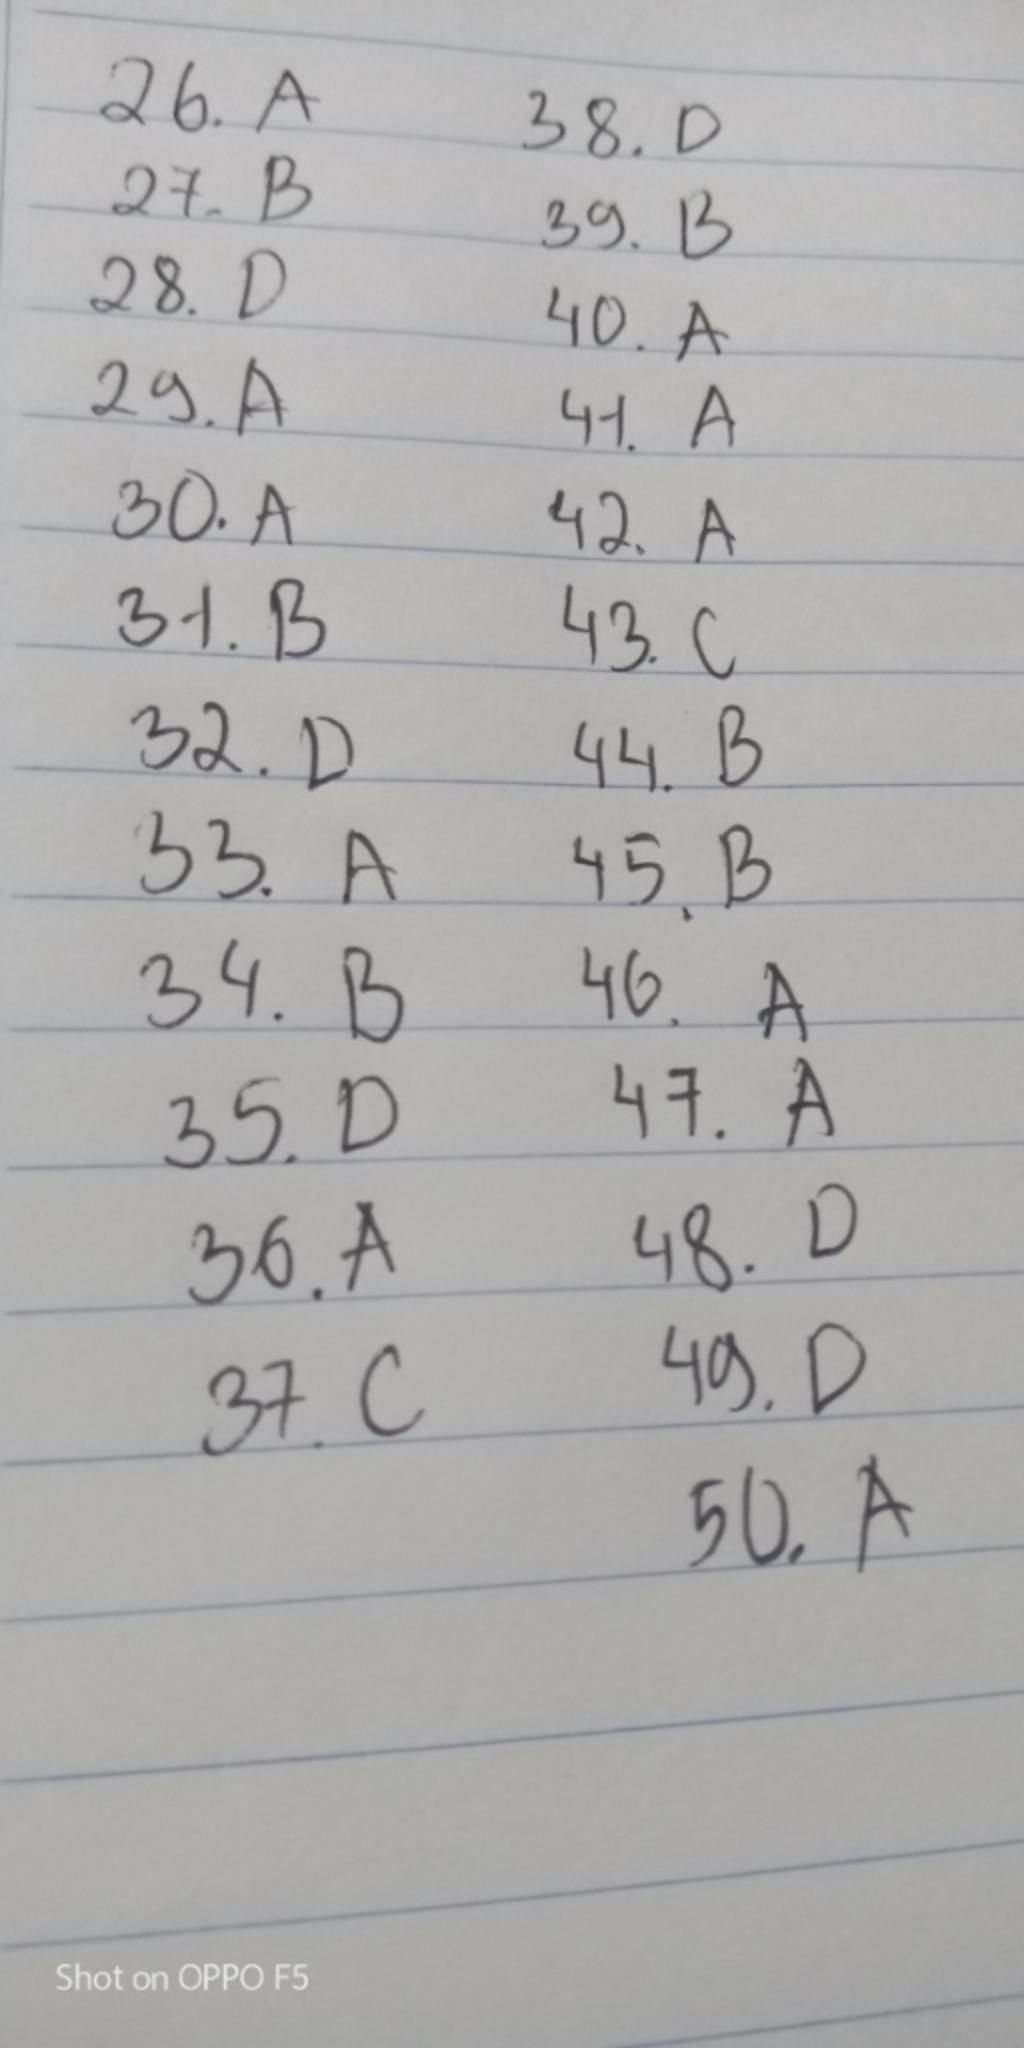 26. A
27. B
28. D
29. A
30. A
31. B
32. D
33. A
34. B
35. D
36. A
37. C
38. D
39. B
40. A
41. A
42. A
43. C
44. B
45. B
46. A
47. A
48. D
49. D
50. A
Shot on OPPO F5